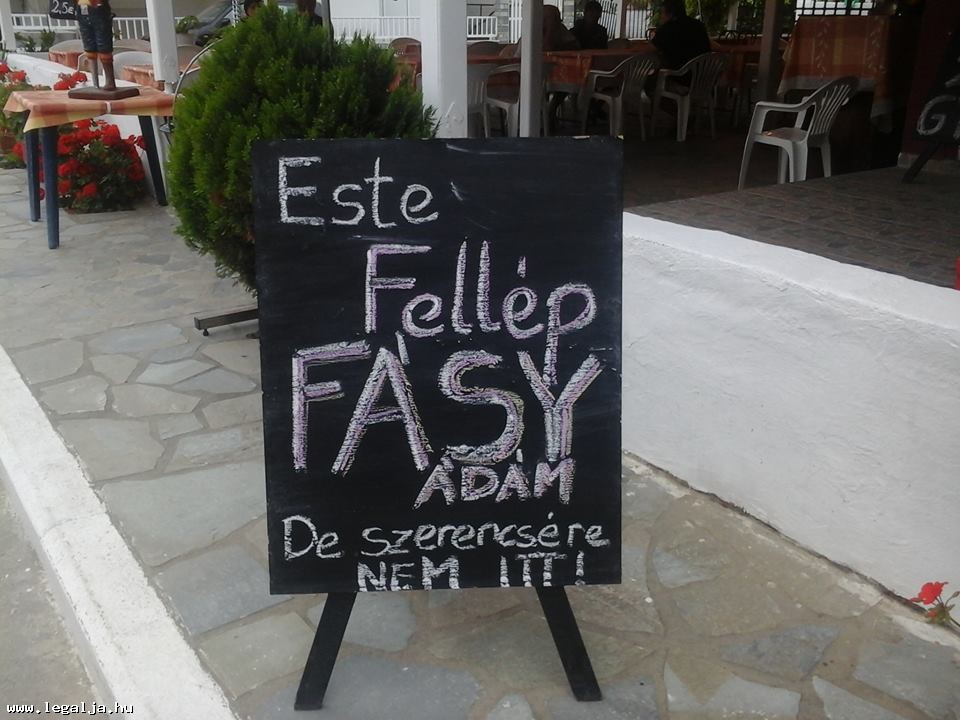 2,5€
Este
Fellép
FÁSY
ÁDÁM
De szerencsére
NEM ITT!
G
www.legalja.hu